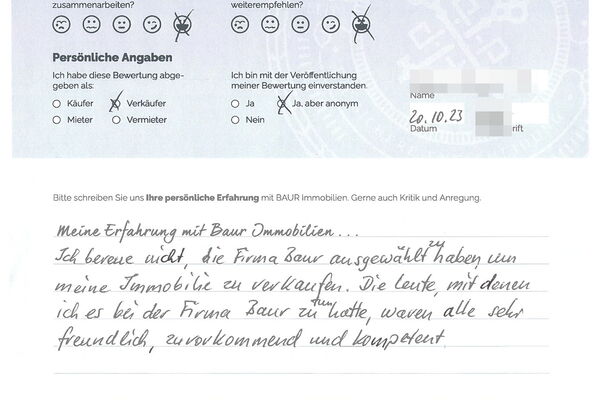 zusammenarbeiten?
weiterempfehlen?
Persönliche Angaben
Ich habe diese Bewertung abge-
geben als:
Käufer
Verkäufer
Mieter
Vermieter
Ich bin mit der Veröffentlichung
meiner Bewertung einverstanden.
Ja
Ja, aber anonym
Nein
Name
20.10.23
Datum
rift
Bitte schreiben Sie uns Ihre persönliche Erfahrung mit BAUR Immobilien. Gerne auch Kritik und Anregung.
Meine Erfahrung mit Baur Immobilien...
Ich bereue nicht, die Firma Baur ausgewählt zu haben um
meine Immobilie zu verkaufen. Die Leute, mit denen
ich es bei der Firma Baur zu tun hatte, waren alle sehr
freundlich, zuvorkommend und kompetent.